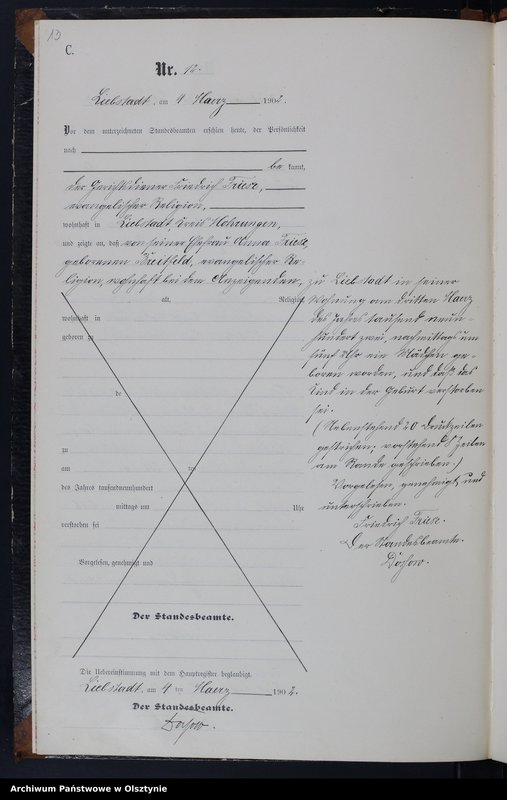 13
C.
Nr. 12.
Liebstadt, am 4 Maerz 1902.
Vor dem unterzeichneten Standesbeamten erschien heute, der Persönlichkeit
nach
be kannt,
der Friedrich Friese,
evangelischer Religion,
wohnhaft in Liebstadt Kreis Mohrungen,
und zeigte an, daß von seiner Ehefrau Anna Friese
geborenen evangelischer Re-
ligion, wohnhaft bei dem Anzeigenden,
alt, Religion,
wohnhaft in
geboren zu
de
zu
am ten
des Jahres tausendneunhundert
mittags um Uhr
verstorben sei
Vorgelesen, genehmigt und
Der Standesbeamte.
zu Liebstadt in seiner
Wohnung am dritten Maerz
des Jahres tausend neun-
hundert zwei, nachmittags um
fünf Uhr ein Mädchen ge-
boren worden, und daß das
Kind in der Geburt verstorben
sei.
(Nebenstehend 20 Druckzeilen
gestrichen; vorstehend 8 Zeilen
am Rande geschrieben.)
Vorgelesen, genehmigt und
unterschrieben.
Friedrich Friese.
Der Standesbeamte.
Die Uebereinstimmung mit dem Hauptregister beglaubigt.
Liebstadt, am 4 ten Maerz 1902.
Der Standesbeamte.
Archiwum Państwowe w Olsztynie